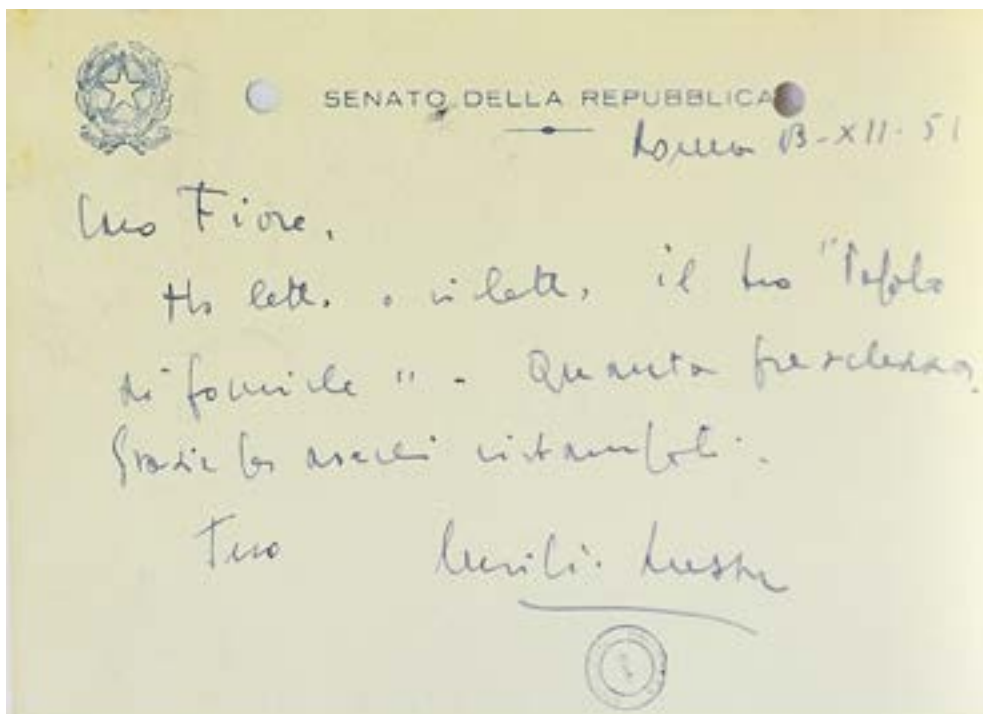 SENATO DELLA REPUBBLICA
Roma 13-XII-51
Caro Fiore,
Ho letto e riletto, il tuo "Popolo
di formiche" - Quanta freschezza,
Grazie per averli ristampati.
Tuo Emilio Lussu